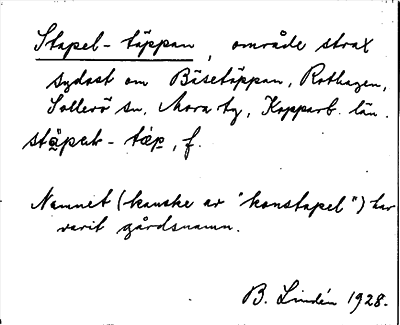 Stapel-täppan, område strax
sydost om Bäsetäppan, Rothagen,
Sollerö sn, Mora tg, Kopparb. län.
stapal- tæp, f.
Namnet (kanske av "konstapel") har
varit gårdsnamn.
B. Lindén 1928.